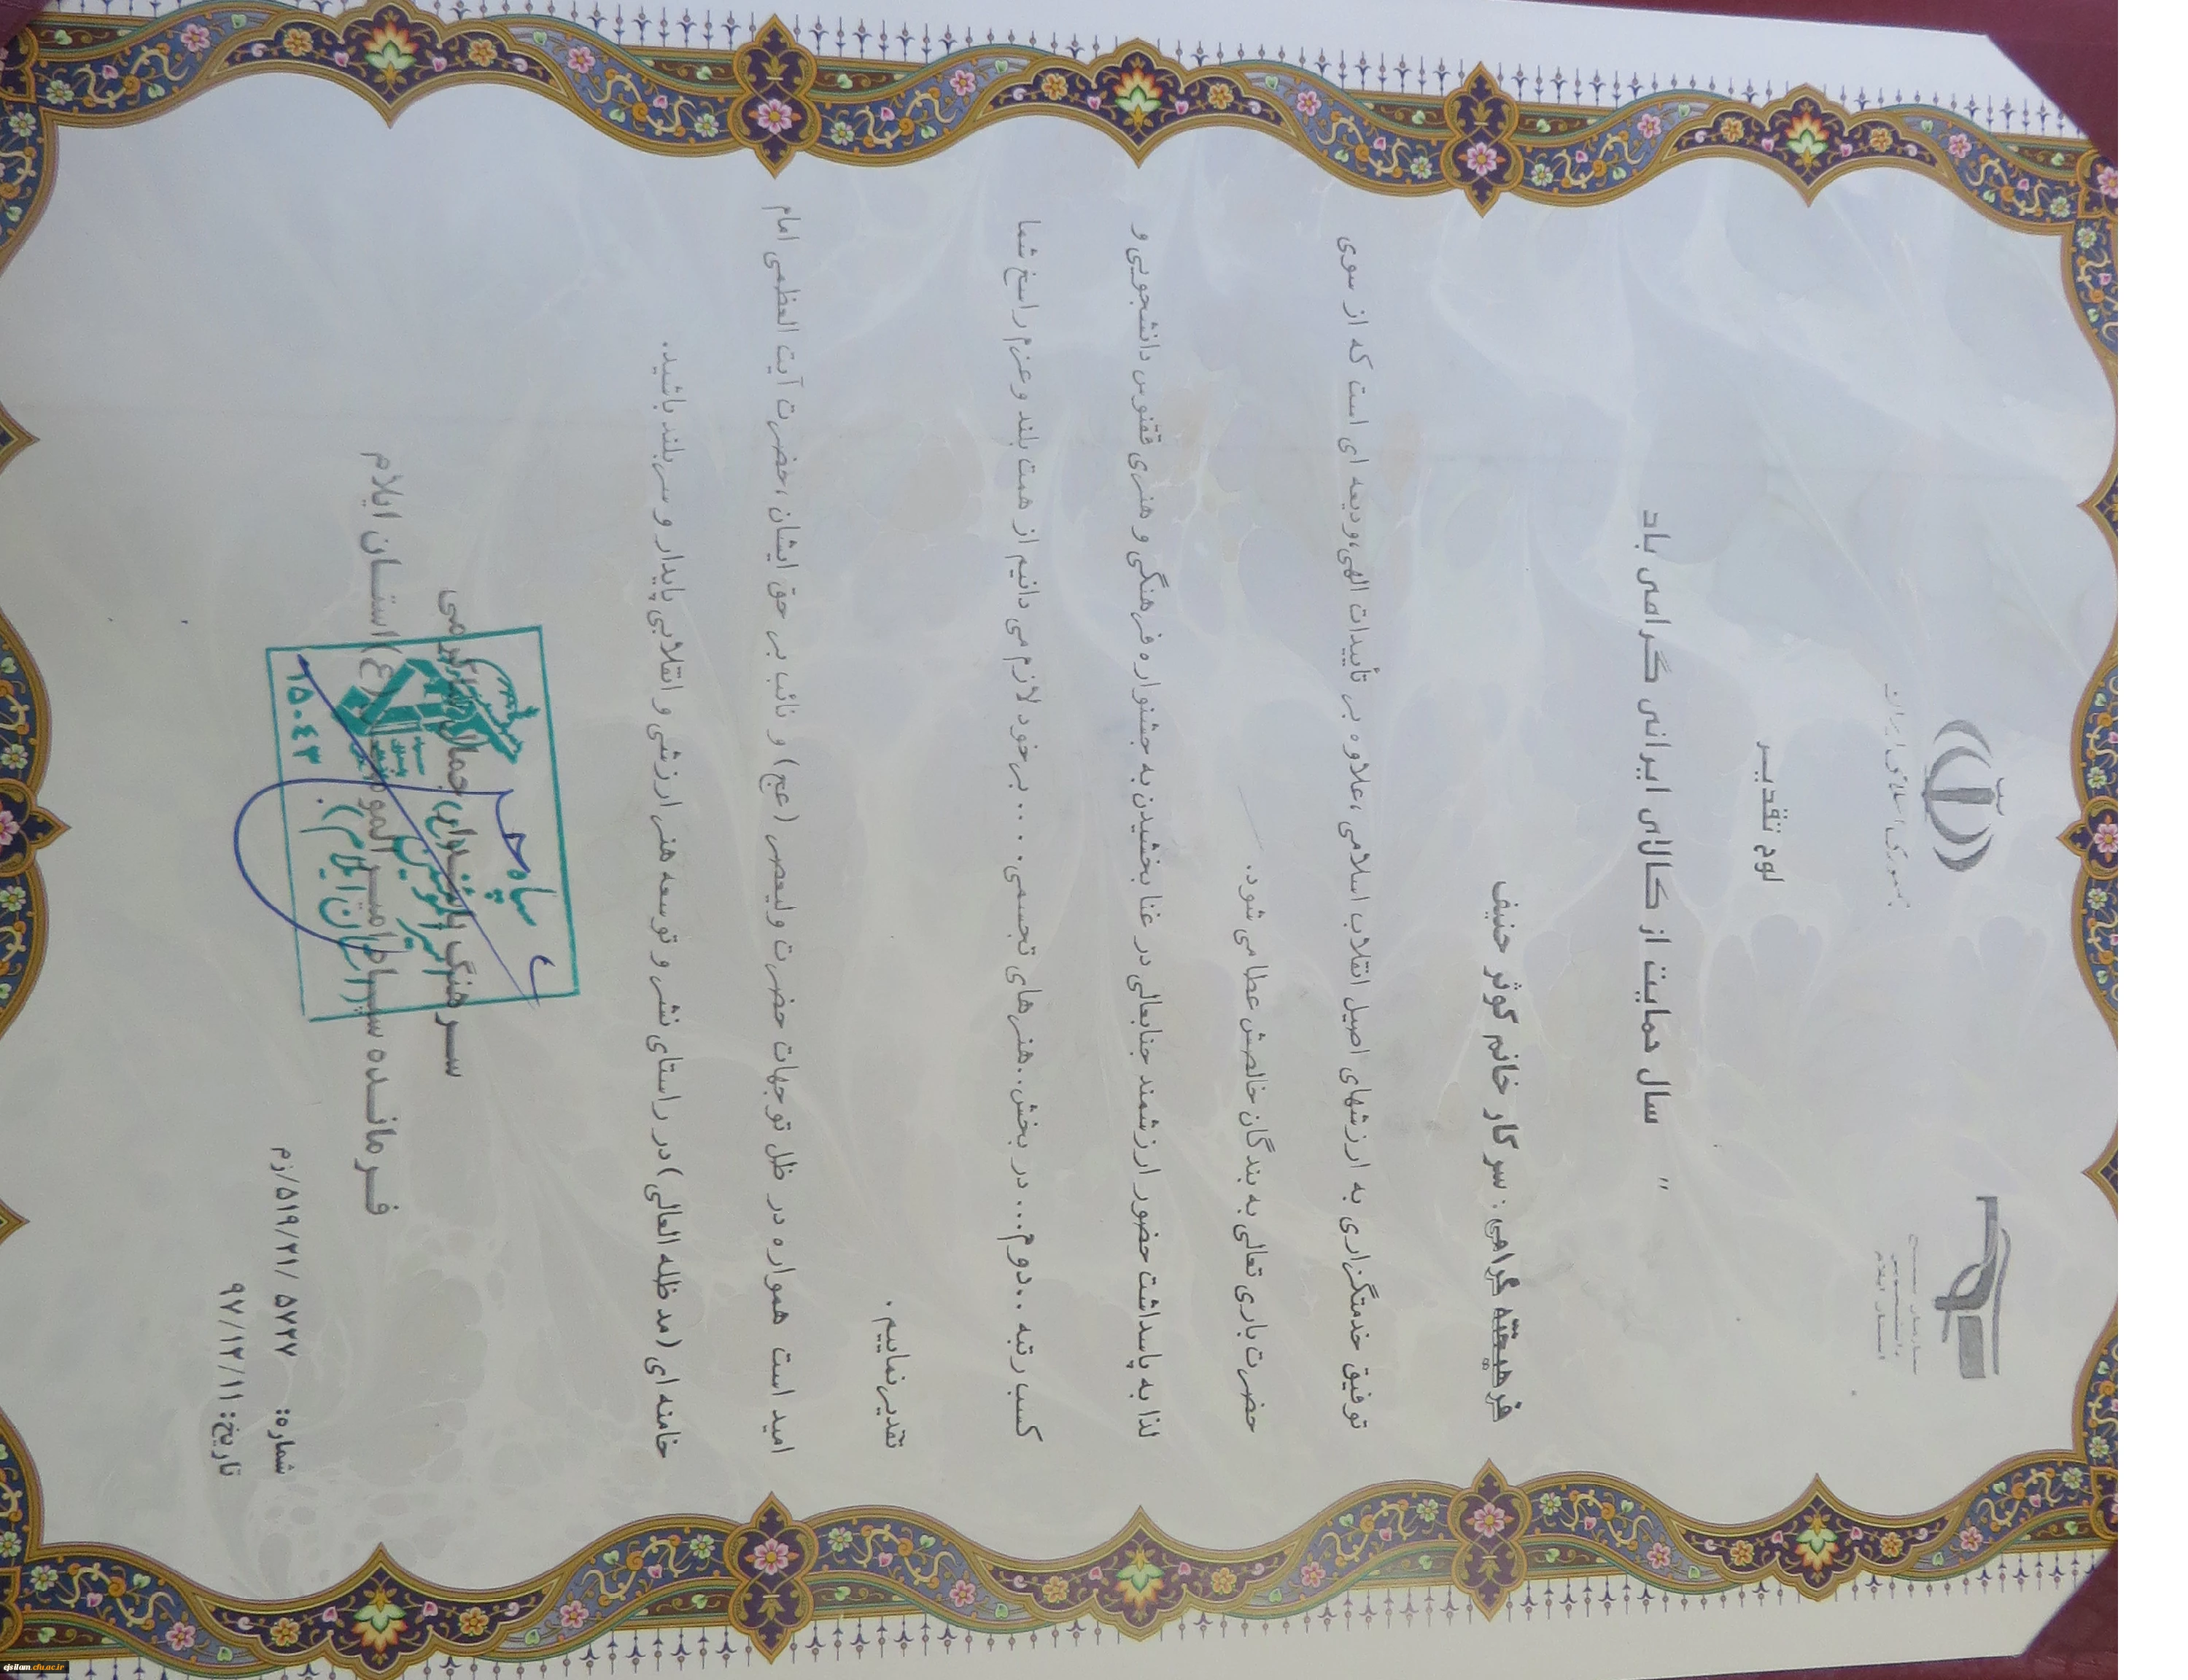 جمهوری اسلامی ایران
لوح تقدیر
" سال حمایت از کالای ایرانی گرامی باد
فرهیخته گرامی : سرکار خانم کوثر حنیف
توفیق خدمتگزاری به ارزشهای اصیل انقلاب اسلامی ،علاوه بر تأییدات الهی،ودیعه ای است که از سوی
حضرت باری تعالی به بندگان خالصش عطا می شود.
لذا به پاسداشت حضور ارزشمند جنابعالی در غنا بخشیدن به جشنواره فرهنگی و هنری ققنوس دانشجویی و
کسب رتبه ..دوم... در بخش..هنرهای تجسمی. . . . برخود لازم می دانیم از همت بلند و عزم راسخ شما
تقدیر نماییم .
امید است همواره در ظل توجهات حضرت ولیعصر (عج) و نائب بر حق ایشان ،حضرت آیت العظمی امام
خامنه ای (مد ظله العالی) در راستای نشر و توسعه هنر ارزشی و انقلابی پایدار و سربلند باشید.
سرهنگ پاسدار جمال شاکرمی
فرمانده سپاه امیرالمومنین(ع) استان ایلام
سپاه حضرت
امیرالمومنین
(استان ایلام)
۱۵۰۴۳
شماره: ۵۷۲۷ /۵۱۹/۲۱/زم
تاریخ: ۹۷/۱۲/۱۱
ejsilam.cfu.ac.ir